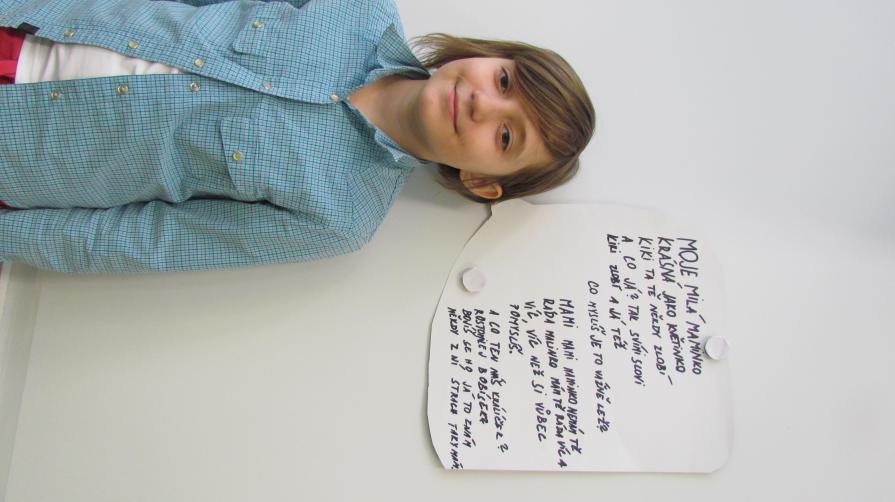 MOJE MILÁ MAMINKO
KRÁSNÁ JAKO KVĚTINKO
KIKI TA TĚ NĚKDY ZLOBÍ
A CO JÁ? TAK SVÍM SLOVI
KIKI ZLOBÍ A JÁ TÉŽ
CO MYSLÍŠ JE TO VÁŽNĚ LEŽ?
MAMI MAMI MAMINKO NEMÁ TĚ
RÁDA MILINKO MÁM TĚ RÁDA VÍC A
VÍC, VÍC NEŽ SI VŮBEC
POMYSLÍŠ.
A CO TEN NÁŠ KRÁLÍČEK?
ROZTOMILEJ BOBÍSEK?
BOJÍŠ SE HO JÁ TO ZNÁM
NĚKDY Z NÍ STRACH TAKY MÁM